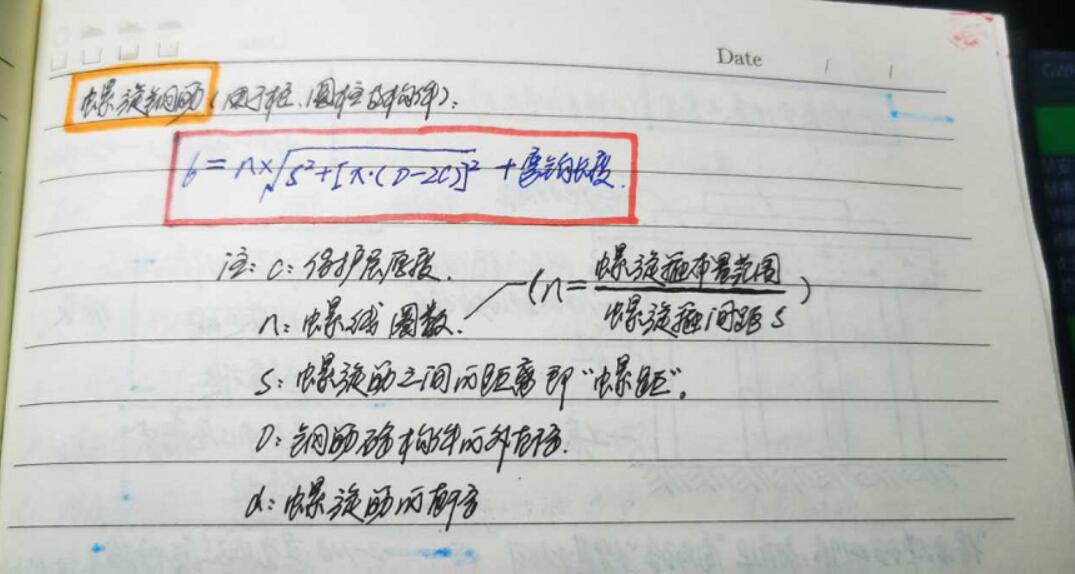 Date
螺旋钢筋(用于桩、圆柱及构件):
L = n×√S²+[π·(D-2C)]² + 弯钩长度.
注: C: 保护层厚度.
n: 螺线圈数. (n= 螺旋箍布置范围 / 螺旋箍间距 S )
S: 螺旋筋之间的距离即“螺距”。
D: 钢筋砼构件的外直径.
d: 螺旋筋的直径